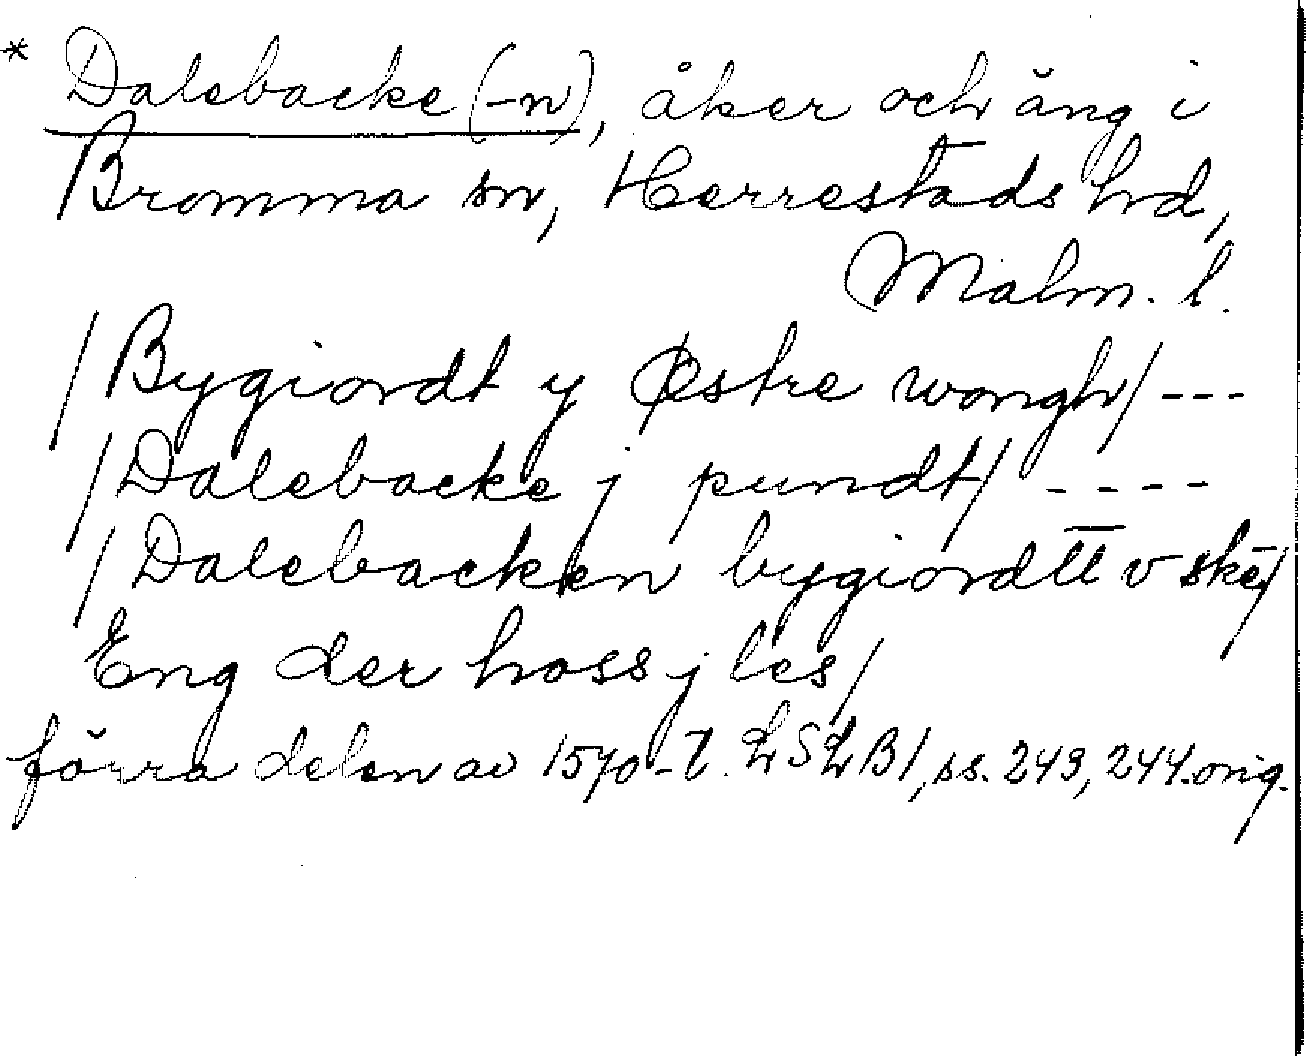 * Dalebacke (-n), åker och äng i
Bromma sn, Herrestads hd,
Malm. l.
/ Bygiordt y Østre wongh / ---
/ Dalebacke j pundt / ----
/ Dalebacken bygiordtt v ske /
Eng der hoss j les /
förra delen av 1570-t. LSLB 1, ss. 243, 244. orig.